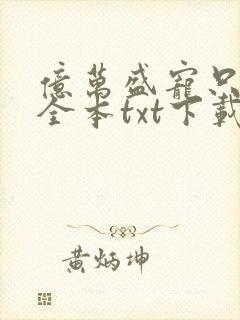 億萬盛寵只
全本txt下載
黃炳坤